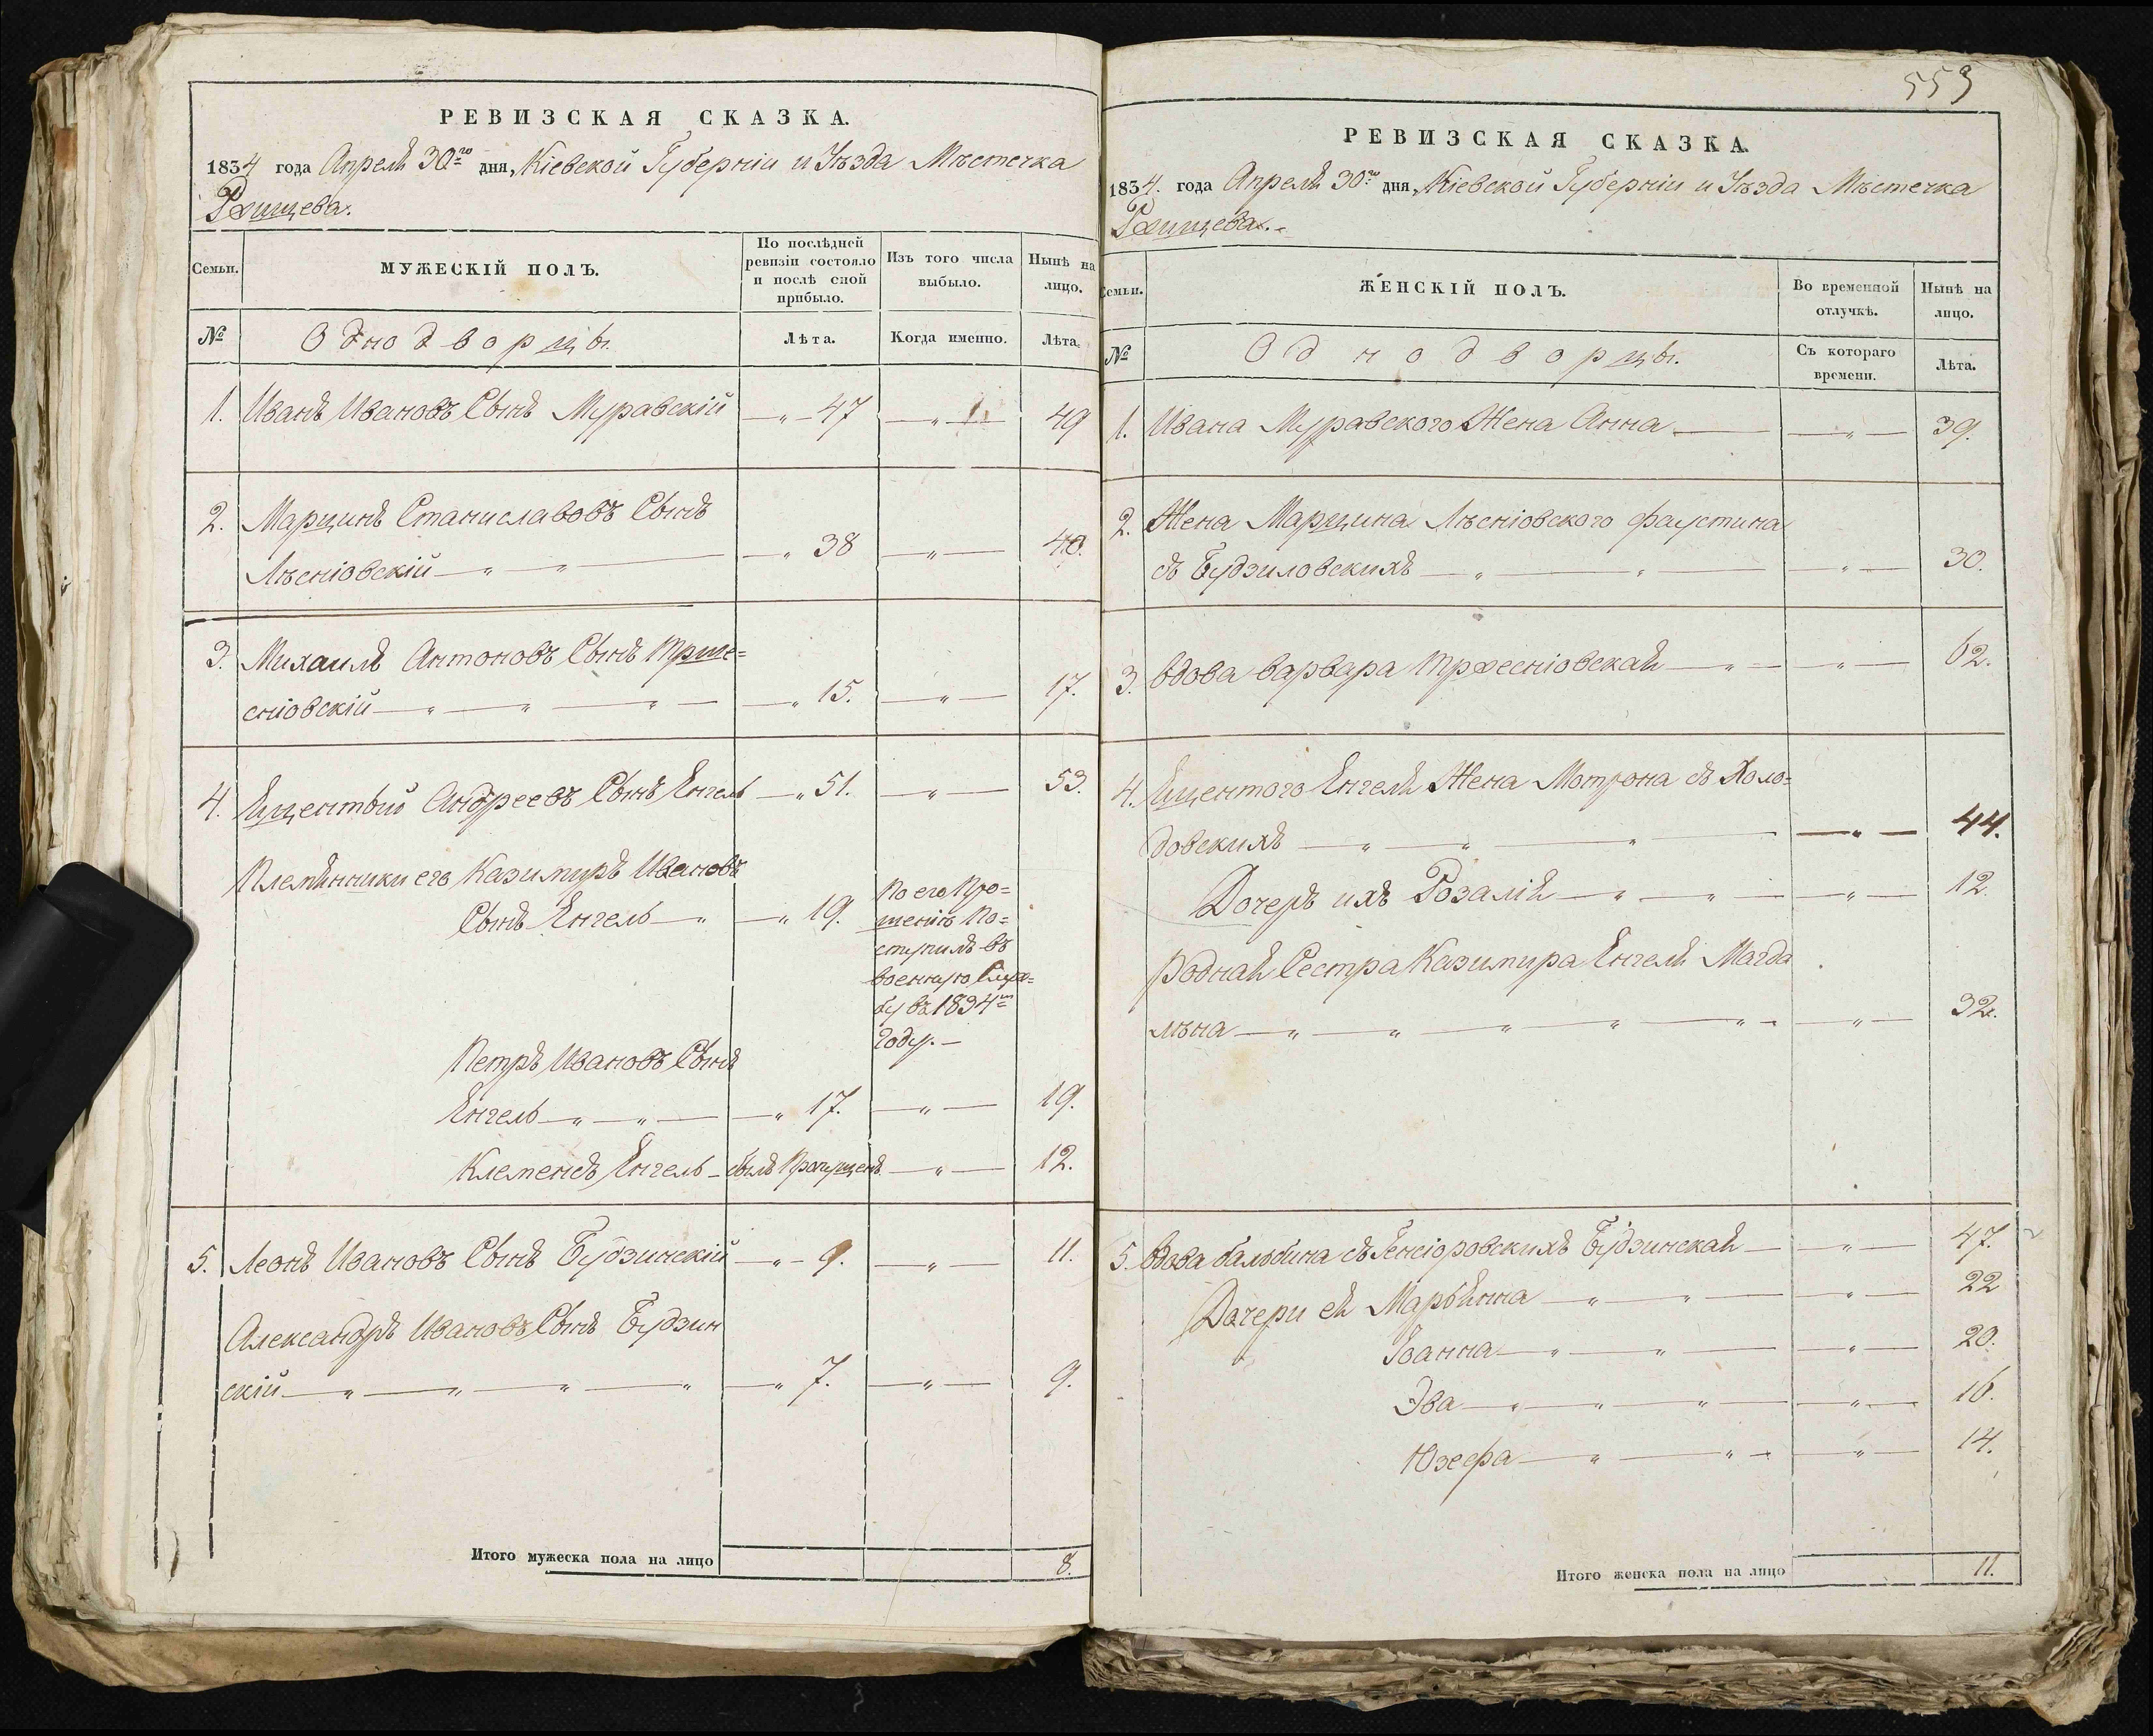 РЕВИЗСКАЯ СКАЗКА.
1834 года Апреля 30го дня, Кіевской Губерніи и Уѣзда Мѣстечка
Ржищева.
Семьи.
МУЖЕСКІЙ ПОЛЪ.
По послѣдней
ревизіи состояло
и послѣ оной
прибыло.
Изъ того числа
выбыло.
Нынѣ на
лицо.
№
Однодворцы.
Лѣта.
Когда именно.
Лѣта.
1. Иванъ Ивановъ Сынъ Муравскій — „ — 47 — „ — 49
2. Марцинъ Станиславовъ Сынъ
Лѣсніовскій — „ — „ — „ 38 — „ — 40.
3. Михаилъ Антоновъ Сынъ Прже=
сніовскій — „ — „ — „ — „ 15. — „ — 17.
4. Яцентый Андреевъ Сынъ Енгель — „ 51. — „ — 53.
Племянники его Казимиръ Ивановъ
Сынъ Енгель — „ — „ 19.
По его Про=
шенію По=
ступилъ въ
военную Служ=
бу въ 1834м
Году. —
Петръ Ивановъ Сынъ
Енгель — „ — „ — „ 17. — „ — 19.
Клеменсъ Енгель — былъ Пропущенъ — „ — 12.
5. Леонъ Ивановъ Сынъ Будзинскій — „ — 9. — „ — 11.
Александръ Ивановъ Сынъ Будзин
скій — „ — „ — „ — „ — „ 7. — „ — 9.
Итого мужеска пола на лицо 8.
553
РЕВИЗСКАЯ СКАЗКА.
1834. года Апреля 30го дня, Кіевской Губерніи и Уѣзда Мѣстечка
Ржищева. -
Семьи.
ЖЕНСКІЙ ПОЛЪ.
Во временной
отлучкѣ.
Нынѣ на
лицо.
№
Однодворцы.
Съ котораго
времени.
Лѣта.
1. Ивана Муравского Жена Анна — — „ — 39.
2. Жена Марцина Лѣсніовского Фаустина
съ Будзиловскихъ — „ — „ — — „ — 30.
3. Вдова Варвара Пржесніовская — „ — — „ — 62.
4. Яцентого Енгеля Жена Мотрона съ Холо=
довскихъ — „ — „ — „ — — „ — 44.
Дочеръ ихъ Розалія — „ — „ — — „ — 12.
Родная Сестра Казимира Енгеля Магда
лѣна — „ — „ — „ — „ — „ - — „ — 32.
5. Вдова Бальбина съ Генсіоровскихъ Будзинская — — „ — 47.
Дочери ея Марьянна — „ — „ — — „ — 22
Іоанна — „ — „ — — „ — 20.
Эва — „ — „ — „ — — „ — 16.
Юзефа — „ — „ - — „ — 14.
Итого женска пола на лицо 11.